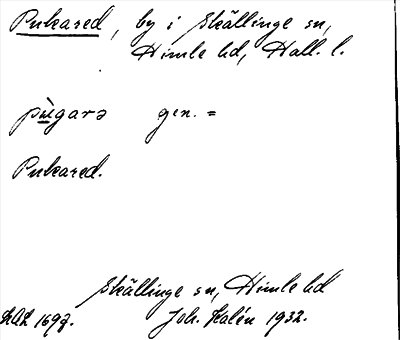 Pukared, by i Skällinge sn,
Himle hd, Hall. l.
pùgarə gen. =
Pukared.
Skällinge sn, Himle hd
1697. Joh. Kalén 1932.